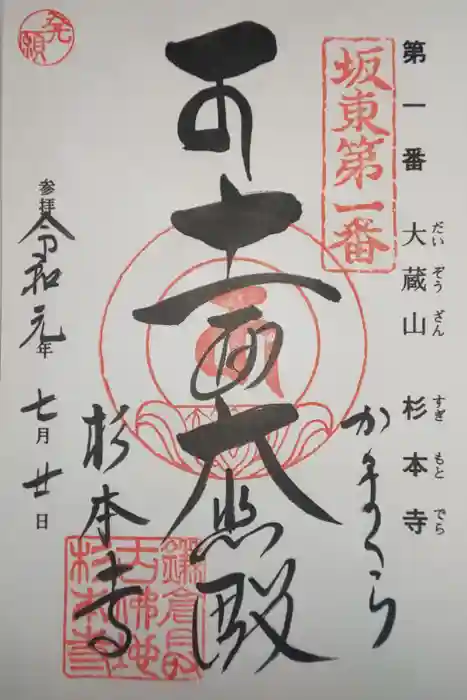 第一番 大蔵山 杉本寺
だい ぞう ざん すぎ もと でら
坂東第一番
かまくら
十一面大悲殿
発願
杉本寺
参拝 令和元年 七月廿日